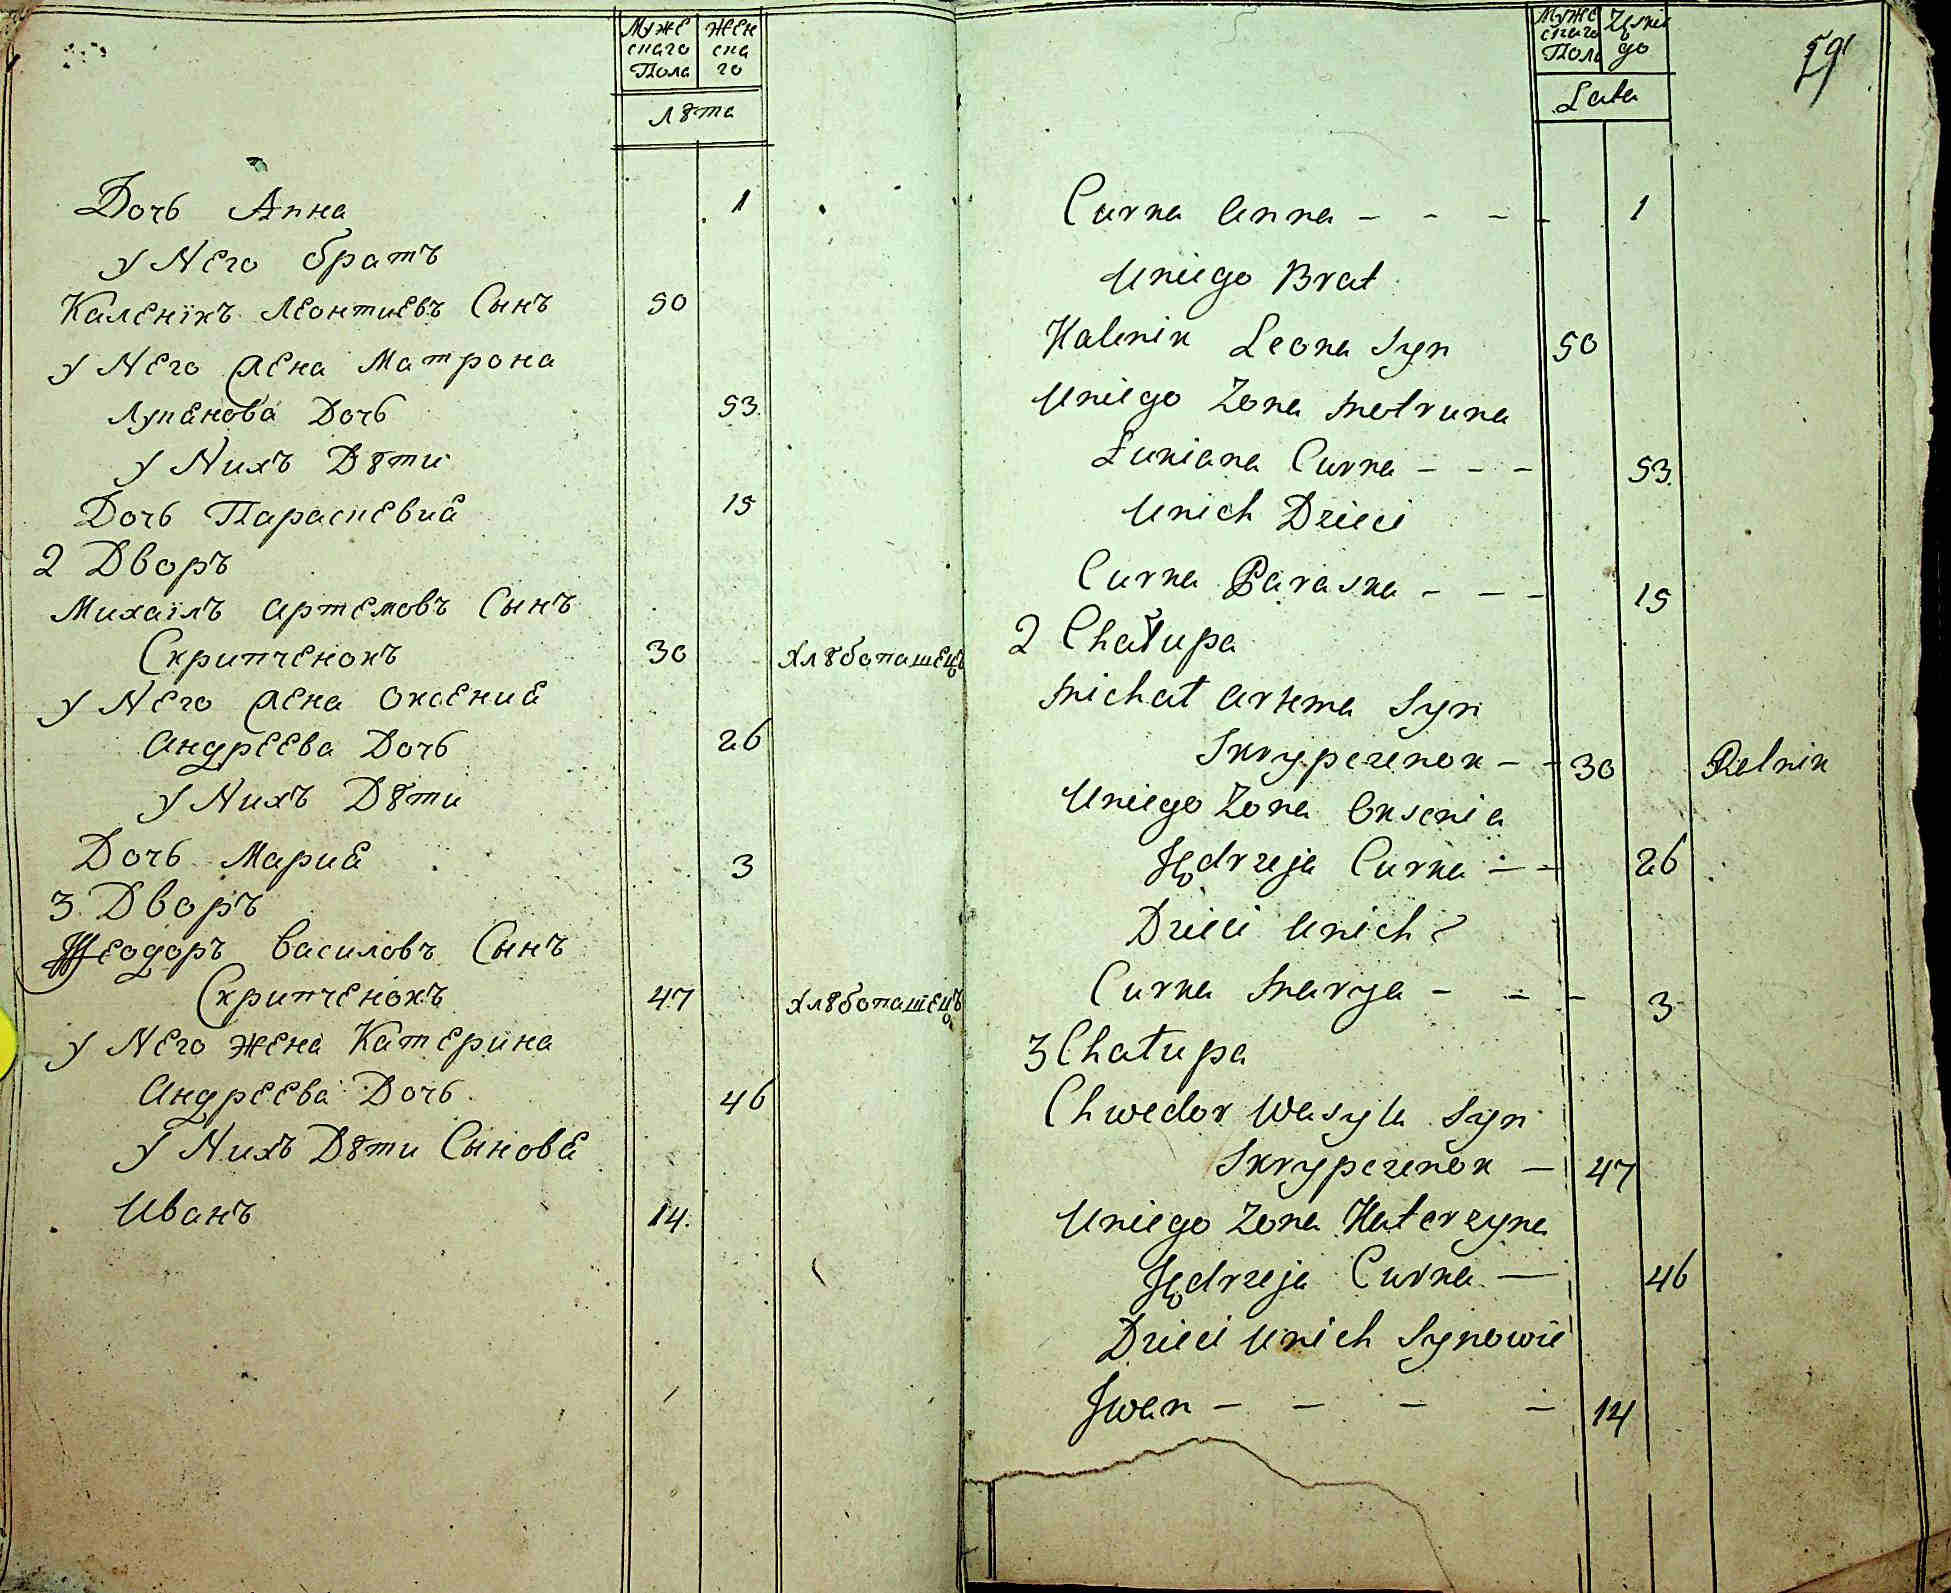 Муже
скаго
Пола
Жен
ска
го
Лѣта
Дочь Анна 1
у Него братъ
Каленікъ Леонтиевъ Сынъ 50
у Него жена Матрона
Лукѣнова Дочь 53
у Нихъ Дѣти
Дочь Параскевиѣ 15
2 Дворъ
Михаілъ Артемовъ Сынъ
Скрипченокъ 30 хлѣбопашецъ
у Него жена Оксениѣ
Андрѣева Дочь 26
у Нихъ Дѣти
Дочь Мариѣ 3
3 Дворъ
Ѳеодоръ Василовъ Сынъ
Скрипченокъ 47 хлѣбопашецъ
у Него жена Катерина
Андрѣева Дочь 46
у Нихъ Дѣти Сыновѣ
Иванъ 14
Муже
скаго
Пола
59
Lata
Curka Anna - - - - 1
Uniego Brat
Kalenik Leona Syn 50
Uniego Zona Motruna
Łukiana Curka - - - 53
Unich Dzieci
Curka Paraska - - - 15
2 Chałupa
Michał Artema Syn
Skrypczenok - - 30 Rolnik
Uniego Zona Oksenia
Jędrzeja Curka - - 26
Dzieci Unich
Curka Marya - - - 3
3 Chałupa
Chwedor Wasyla Syn
Skrypczenok - 47
Uniego Zona Katerzyna
Jędrzeja Curka - 46
Dzieci Unich Synowie
Jwan - - - - 14